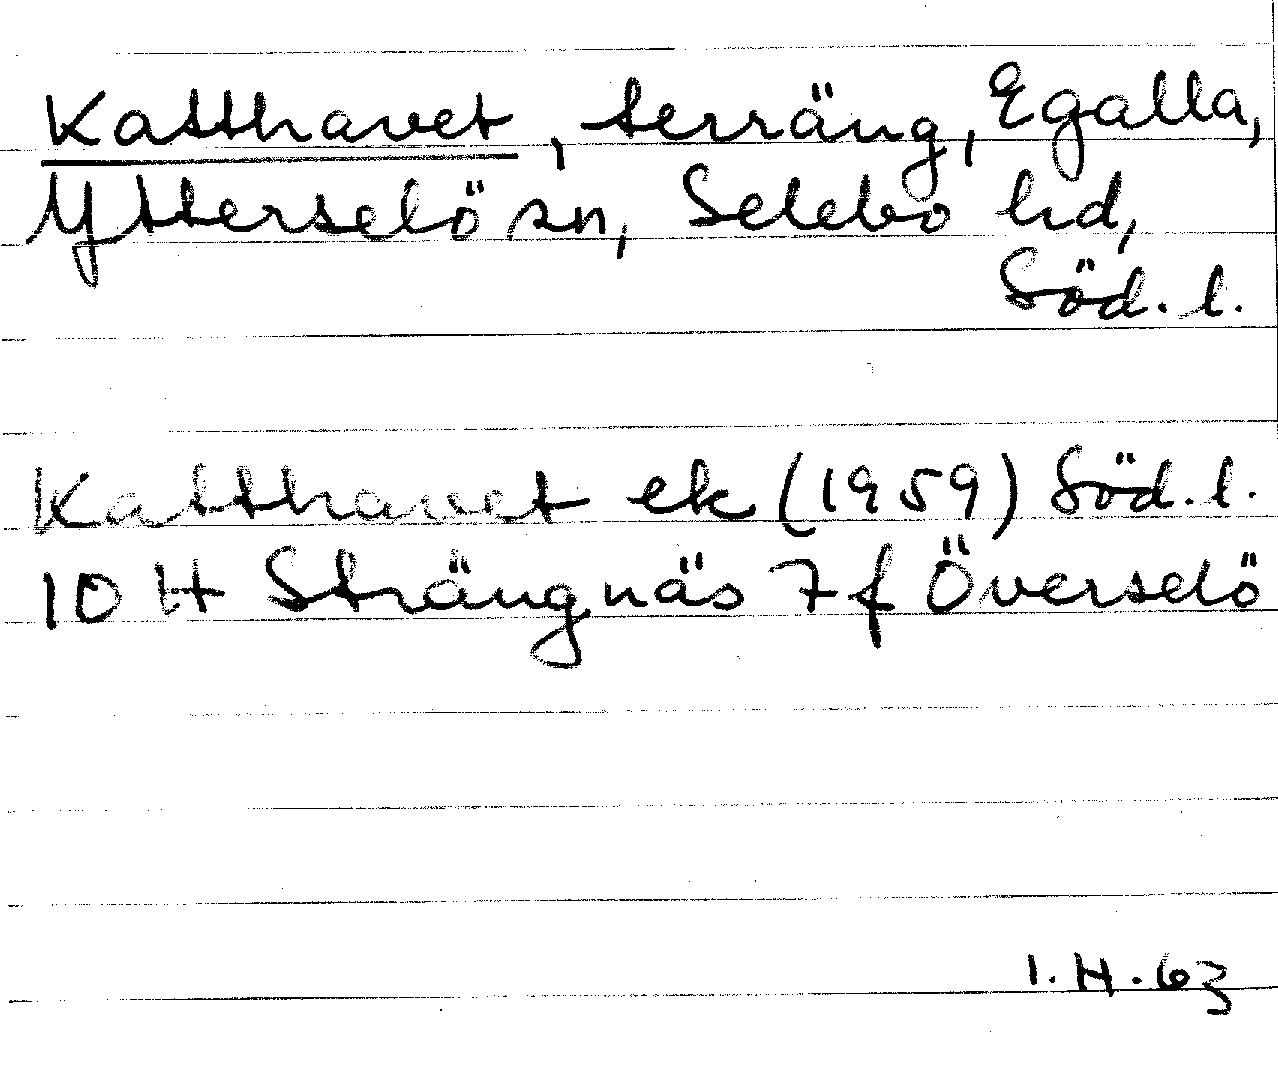 Katthavet, terräng, Egalla,
Ytterselö sn, Selebo hd,
Söd. l.
Katthavet ek (1959) Söd. l.
10 H Strängnäs 7 f Överselö
1. H. 63